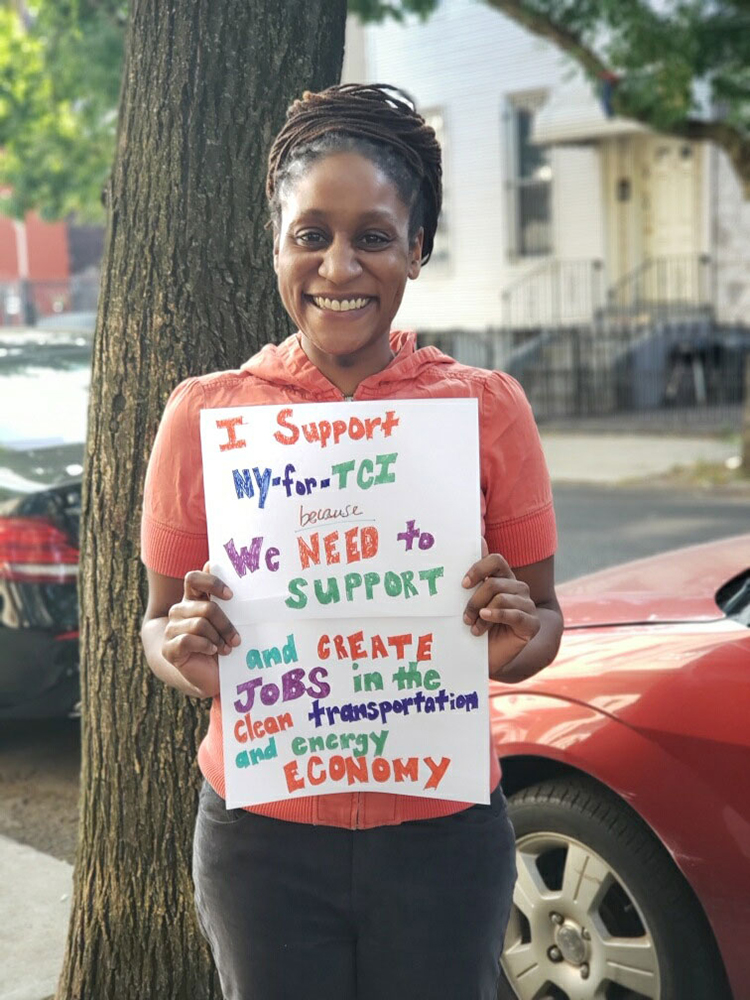 I Support
NY-for-TCI
because
We NEED to
SUPPORT
and CREATE
JOBS in the
clean transportation
and energy
ECONOMY